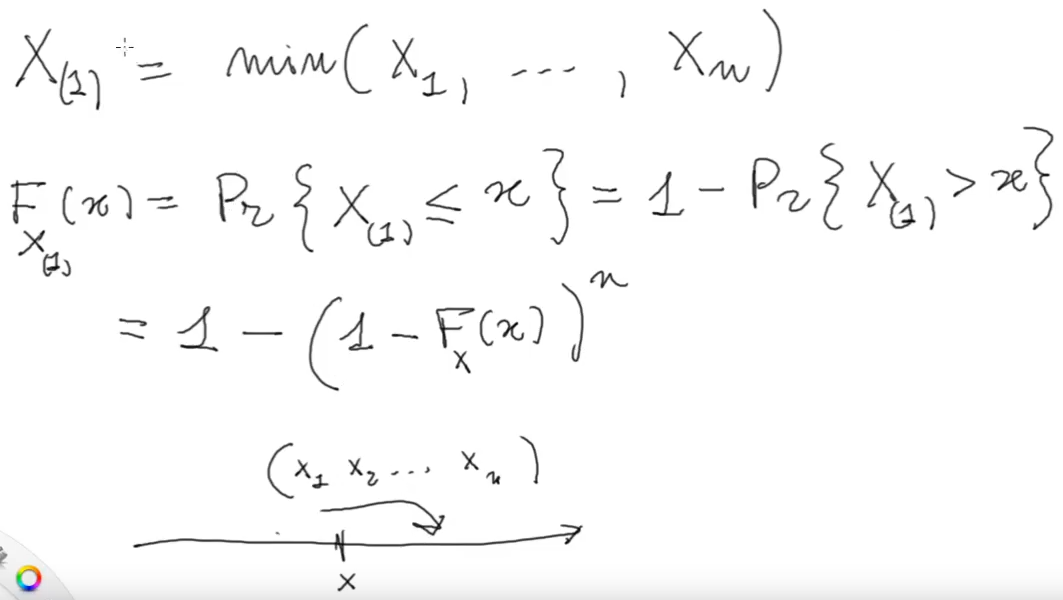 X₍₁₎ = min(X₁, ..., Xₙ)
F_X₍₁₎(x) = Pr{X₍₁₎ ≤ x} = 1 - Pr{X₍₁₎ > x}
= 1 - (1 - F_X(x))ⁿ
(x₁ x₂ ... xₙ)
x